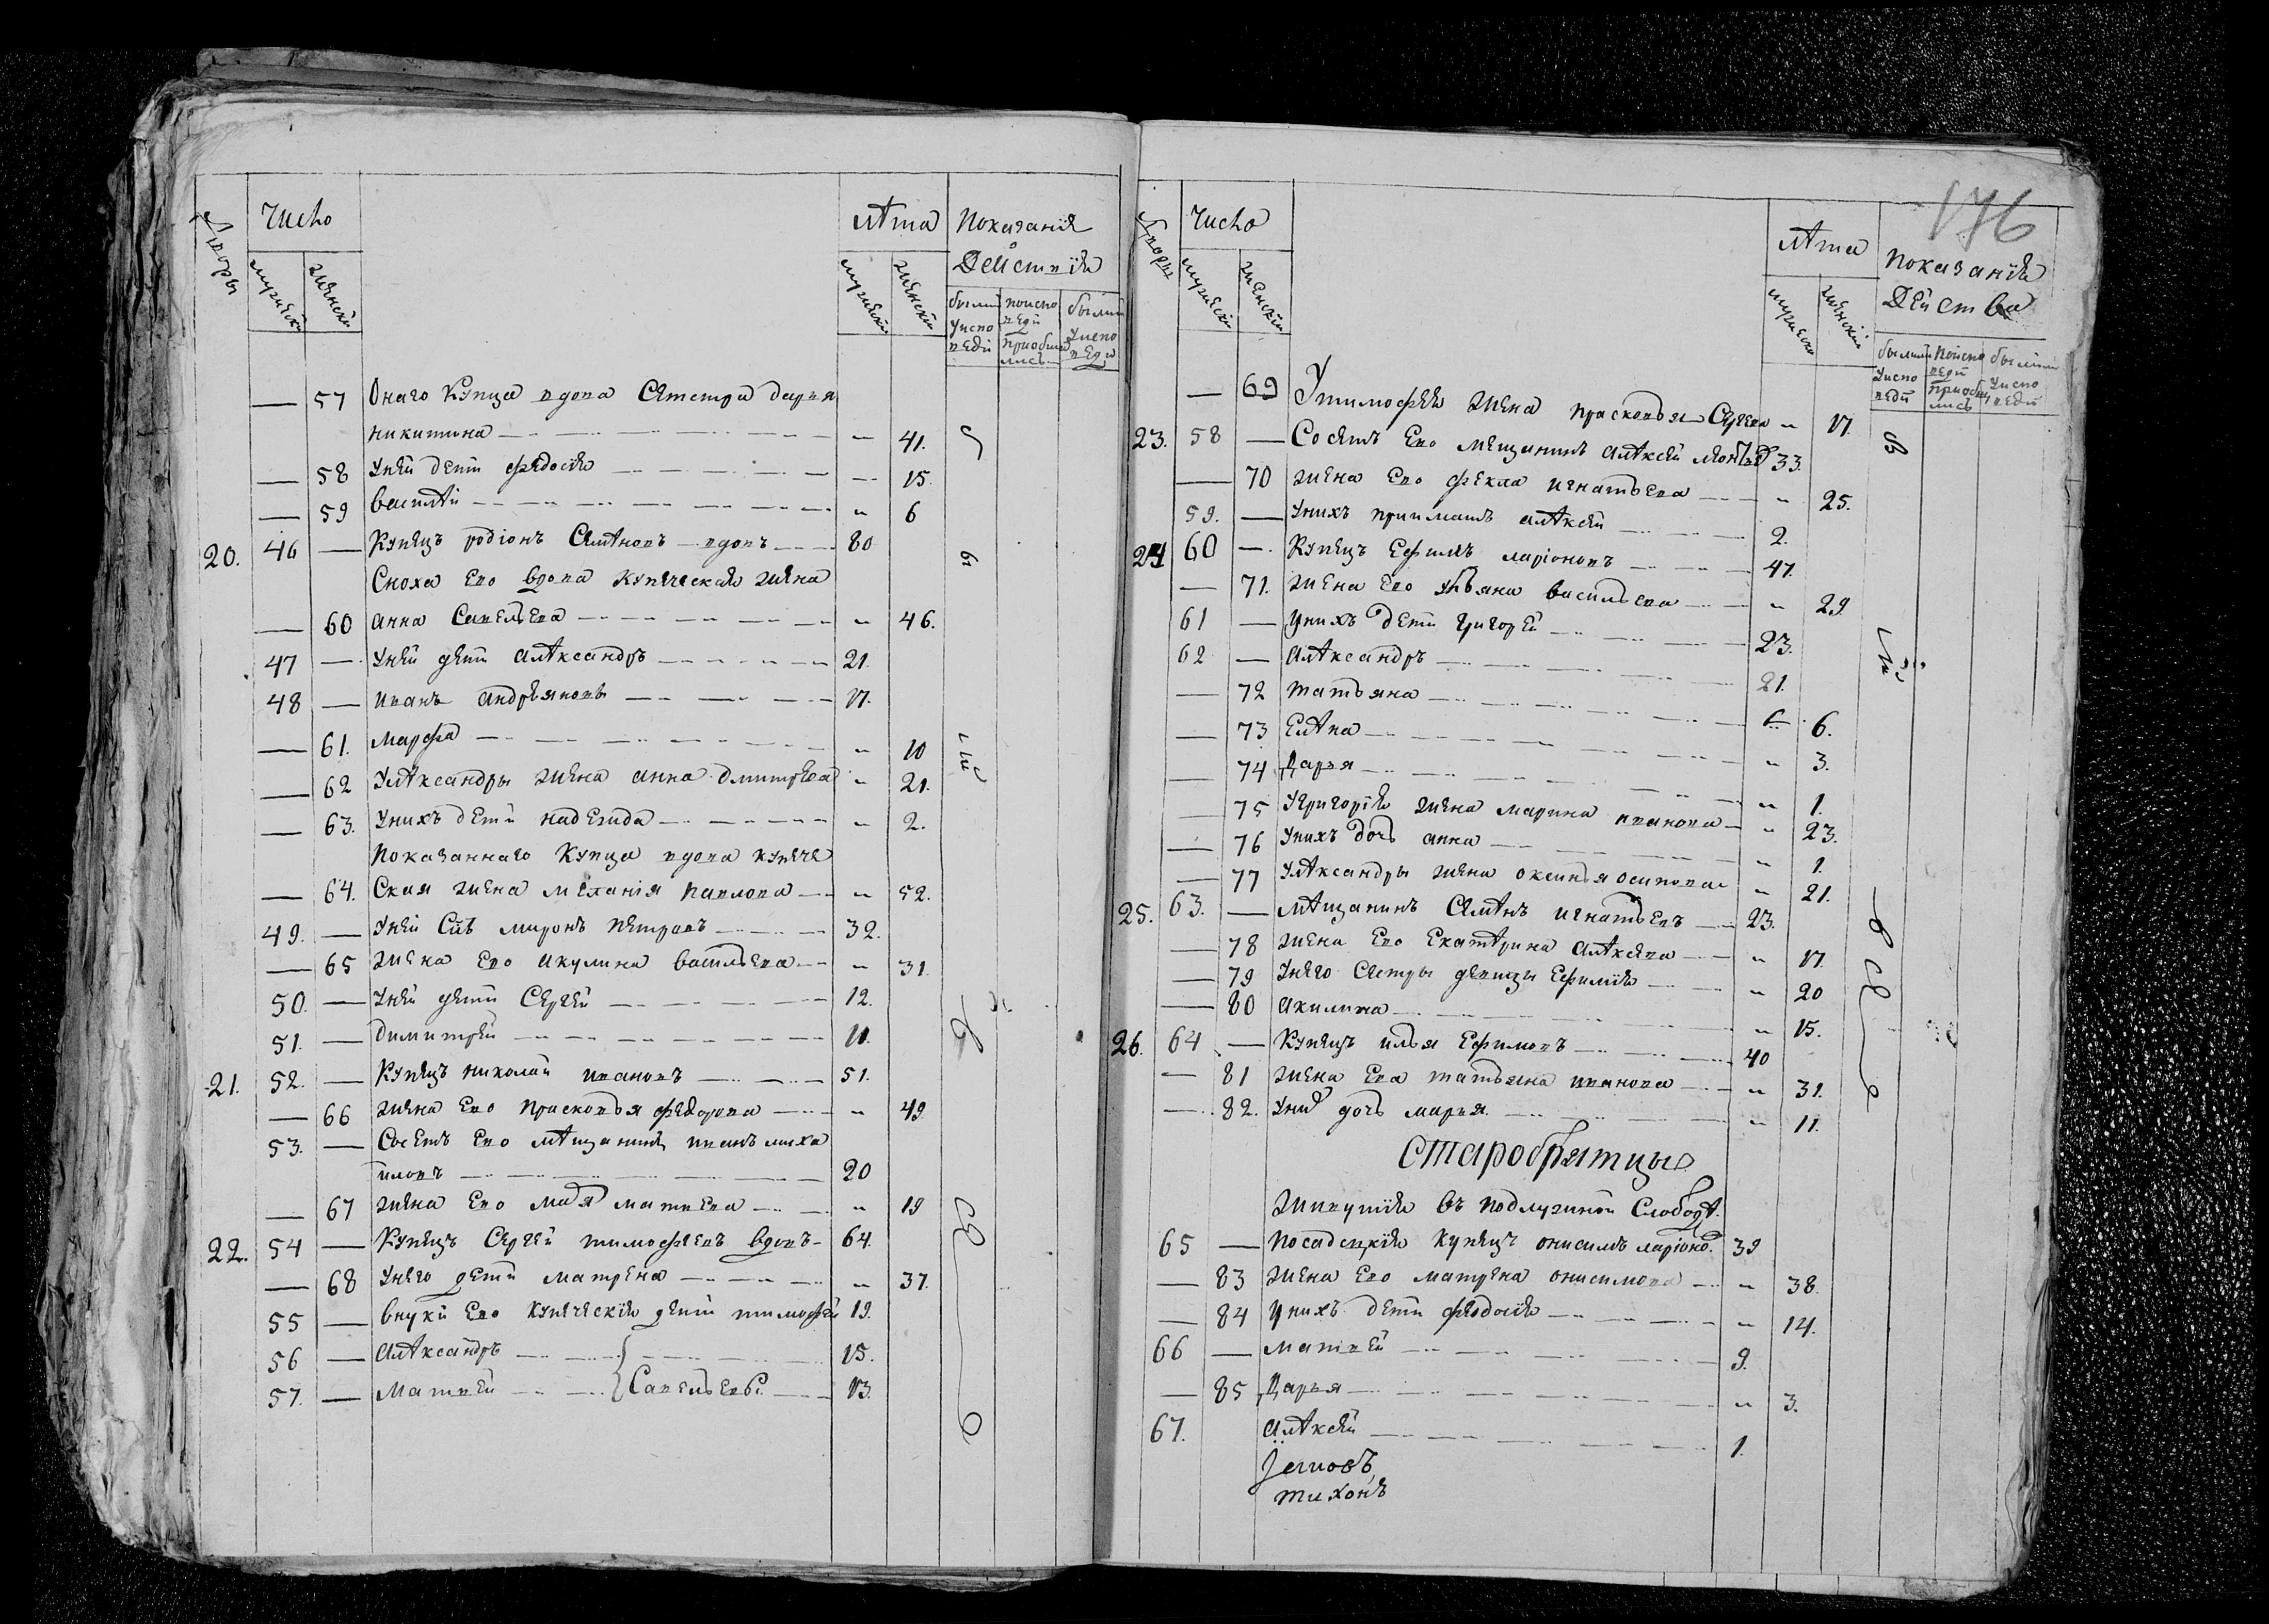 Дворы
Число
мужески
женски
лѣта
мужески
женски
Показанiя
Действiя
были
Уиспо
веди
поиспо
веди
приобща
лись
были
Уиспо
веди
— 57 Онаго Купца вдова Сѣстра дарья
никитина — „ 41.
— 58 Уней дети федосiя — 15.
— 59 василѣй — „ 6
20. 46 — Купецъ родiонъ Семѣновъ вдовъ — 80
Сноха Его вдова купеческая жена
— 60 анна Савельева — „ 46.
47 — Уней дети алѣксандръ — 21.
48 — иванъ андреяновы — 17.
— 61. марфа — „ 10
— 62 Уалѣксандры жена анна дмитрева „ 21.
— 63. Унихъ дети надежда — „ 2.
Показаннаго Купца вдова купече
— 64. Ская жена меланiя павлова — „ 52.
49. — Уней Сынъ миронъ петровъ — 32.
— 65 жена Его акулина васильева — „ 31.
50. — Уней дети Сергей — 12.
51. — димитрей — 11.
21. 52. — Купецъ николай ивановъ — 51.
— 66 жена Его прасковья федорова — „ 49
53. — Сосетъ Его мѣщанинъ иванъ миха
иловъ — 20
— 67 жена Его марья матвева — „ 19
22. 54 — Купецъ Сергей тимофеевъ вдовъ - 64.
— 68 Унего дети матрена — „ 37.
55 — внуки Его купеческiя дети тимофей 19.
56 — алѣксандръ — 15.
57. — матвей — } Савельевы — 13.
176
Дворы
Число
мужески
женскiй
лѣта
мужеска
женскiй
показанiя
Действа
были
Уиспо
веди
поиспо
веди
приобщ
лись
были
Уиспо
веди
— 69 Утимофея жена прасковья Сергева „ 17.
23. 58 — Сосетъ Его мещанинъ алѣксей 33.
— 70 жена Его фекла игнатьева — „ 25.
59. — Унихъ приимашъ алѣксей — 2.
24 60 — Купецъ Ефимъ ларiоновъ — 47.
— 71. жена Его ульяна васильева — „ 29
61 — унихъ дети григорей — 23.
62 — алѣксандръ — 21.
— 72 татьяна — 6.
— 73 Елѣна — „ 3.
— 74 Дарья — „ 1.
— 75 Угригорiя жена марина иванова — „ 23.
— 76 Унихъ дочь анна — „ 1.
— 77 Уалѣксандры жена оксинья осипова „ 21.
25. 63. — мѣщанинъ Семѣнъ игнатьевъ — 23.
— 78 жена Его Екатѣрина алѣксева — „ 17.
— 79 Унего Сестры девицы Ефимiя — „ 20
— 80 акилина — „ 15.
26. 64 — Купецъ илья Ефимовъ — 40
— 81 жена Ева татьяна иванова — „ 31.
— 82. Уних дочь марья — „ 11.
Старобрятцы
живущiя въ подлужиной Слободѣ.
65 — Посадскiя купецъ онисимъ ларiоно. 39
— 83 жена Его матрена онисимова — „ 38.
— 84 унихъ дети федосiя — „ 14.
66 — матвей — 9.
— 85 Дарья — „ 3.
67. алѣксей — 1.
тихонъ